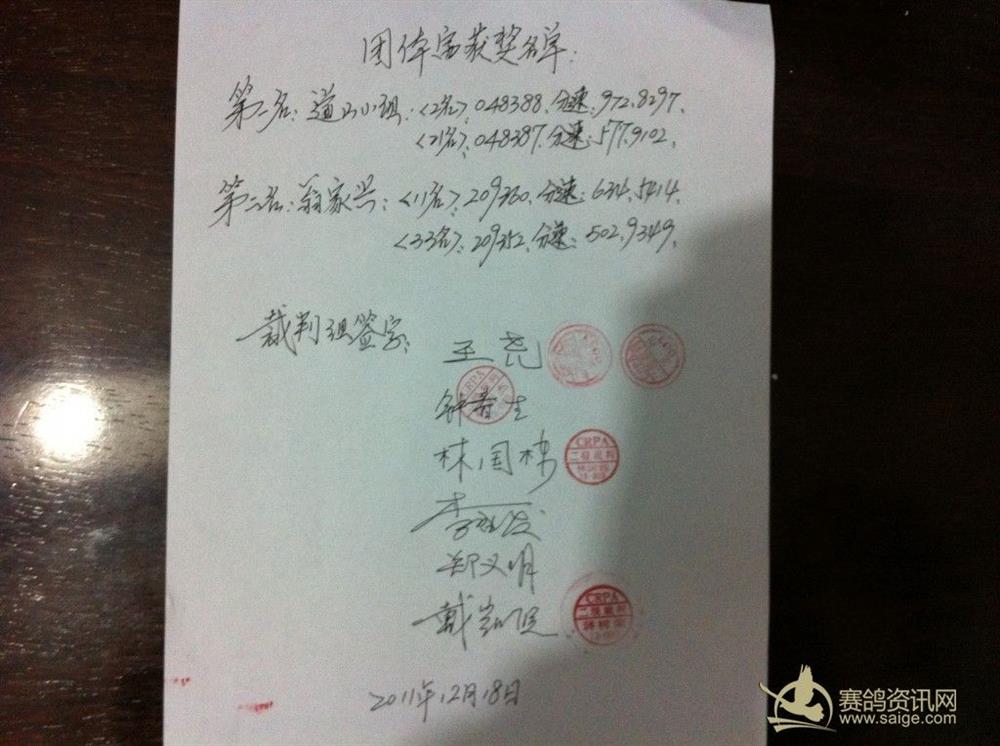 团体赛获奖名单:
第一名: 道山小组: <2名>, 048388, 分速: 972.8297,
<21名>, 048387, 分速: 577.9102,
第二名: 翁家兴: <11名>, 209360, 分速: 634.5414,
<33名>, 209352, 分速: 502.9349,
裁判组签字:
王尧
钟春生
CRPA
林国栋
CRPA
二级裁判
李
郑义明
戴
CRPA
二级裁判
2011年12月18日
赛鸽资讯网
www.saige.com